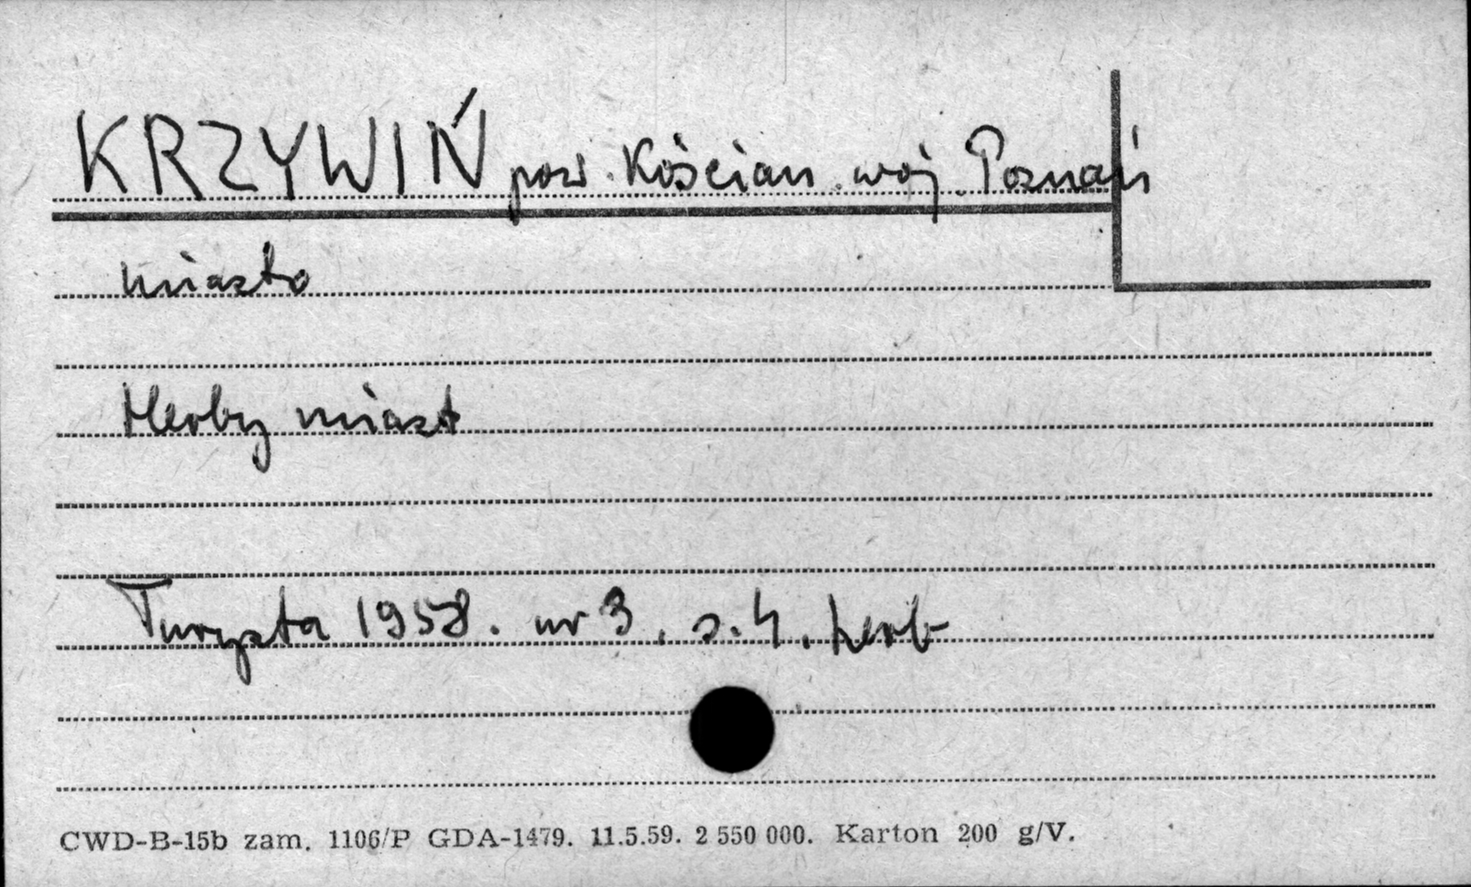 KRZYWIŃ pow. Kościan woj. Poznań
miasto
Herby miast
Turysta 1958. nr 3, s. 4. herb
CWD-B-15b zam. 1106/P GDA-1479. 11.5.59. 2 550 000. Karton 200 g/V.